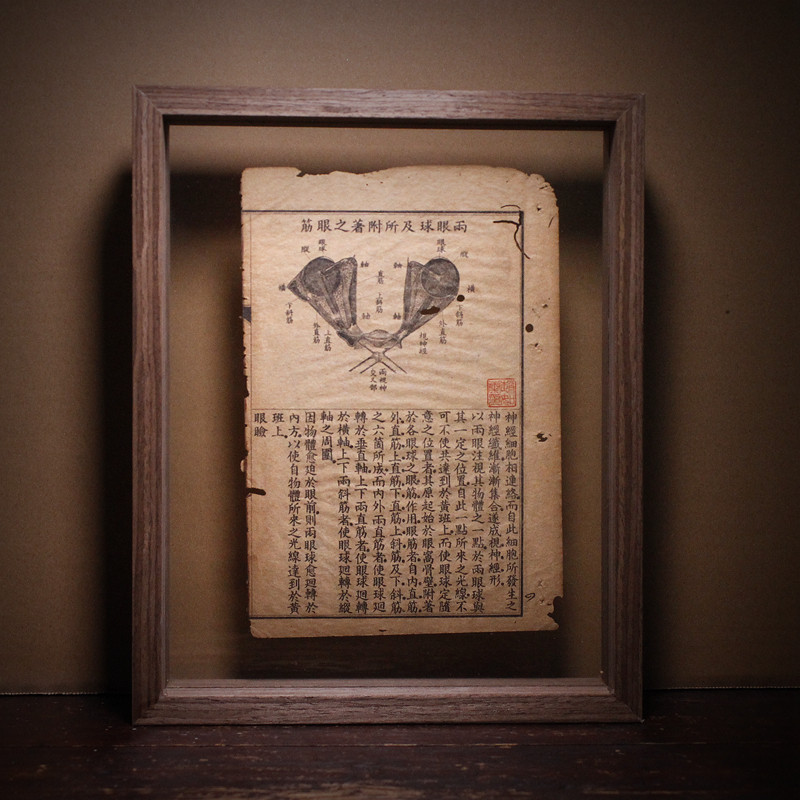 兩眼球及所附著之眼筋
眼球
縱
橫
外直筋
視神經
軸
軸
直筋
上斜筋
軸
軸
眼球
縱
橫
下斜筋
外直筋
上直筋
兩視神
交叉部
神經細胞相連絡.而自此細胞所發生之
神經纖維漸漸集合遂成視神經形.
以兩眼注視其物體之一點.於兩眼球與
其一定之位置.自此一點所來之光線.不
可不使共達到於黃班上.而使眼球定隨
意之位置者.其原起始於眼窩骨壁.附著
於各眼球之眼筋作用.眼筋者.自內直筋.
外直筋.上直筋.下直筋.上斜筋.及下斜筋
之六箇所成.而內外兩直筋者.使眼球廻
轉於垂直軸.上下兩直筋者.使眼球廻轉
於橫軸.上下兩斜筋者.使眼球廻轉於縱
軸之周圍.
因物體愈近於眼前.則兩眼球愈廻轉於
內方.以使自物體所來之光線達到於黃
班上.
眼瞼